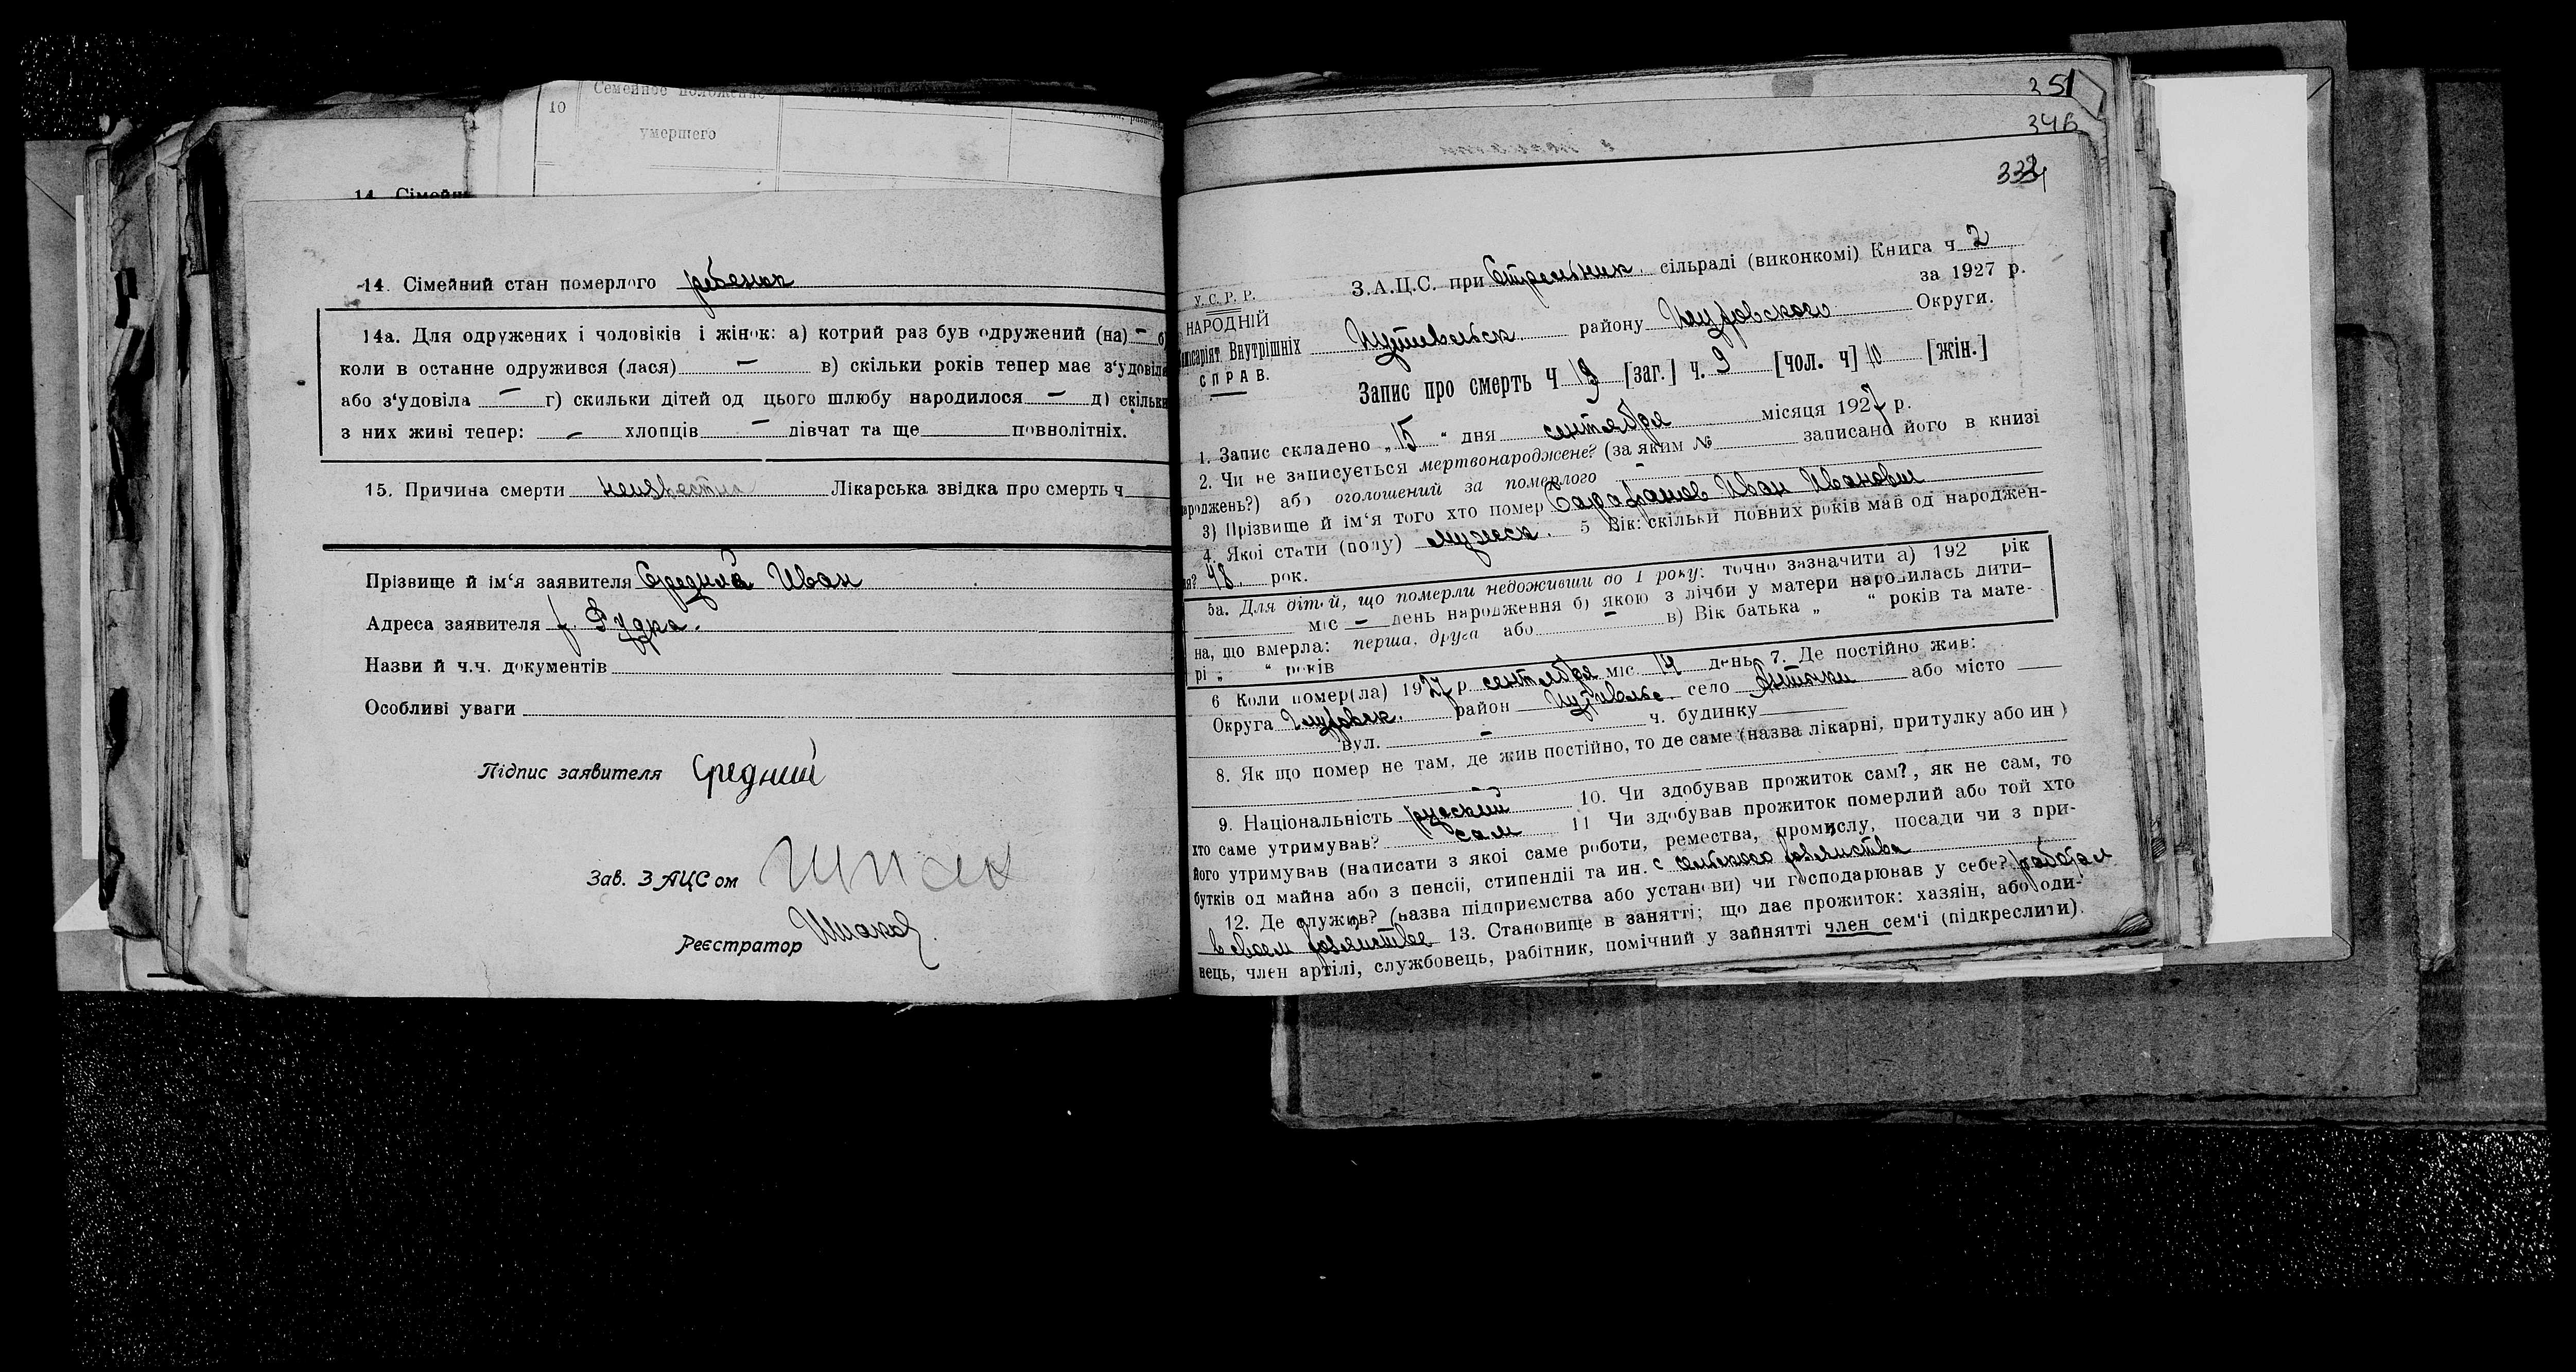 10
Семейное положение
умершего
14. Сімейн
14. Сімейний стан померлого ребенок
14а. Для одружених і чоловіків і жінок: а) котрий раз був одружений (на) — б)
коли в останне одружився (лася) — в) скільки років тепер має з'удовіл
або з'удовіла — г) скильки дітей од цього шлюбу народилося — д) скільки
з них живі тепер: — хлопців — дівчат та ще повнолітніх.
15. Причина смерти неизвестна Лікарська звідка про смерть ч
Прізвище й ім'я заявителя Средний Иван
Адреса заявителя х. Рудка.
Назви й ч.ч. документів
Особливі уваги
Підпис заявителя Средний
Зав. ЗАЦСом
Реєстратор
351
346
У.С.Р.Р.
НАРОДНІЙ
місаріят Внутрішніх
СПРАВ.
З.А.Ц.С. при Стрельник. сільраді (виконкомі) Книга ч 2
за 1927 р.
Путивльск району Глуховского Округи.
Запис про смерть Ч 19 [заг.] ч. 9 [чол. ч] 10 [жін.]
1. Запис складено „15" дня сентября місяця 1927 р.
2. Чи не записується мертвонароджене? (за яким № записано його в книзі
роджень?) або оголошений за померлого —
3) Прізвище й ім'я того хто помер Сарафанов Иван Иванович
4. Якої стати (полу) мужеск. 5 Вік: скільки повних років мав од народжен-
ня? 48. рок.
5а. Для дітей, що померли недоживши до 1 року: точно зазначити а) 192 рік
міс — день народження б) якою з лічби у матери народилась дити-
на, що вмерла: перша, друга або — в) Вік батька „ " років та мате-
рі „ " років
6 Коли помер(ла) 1927 р. сентября міс. 14 день 7. Де постійно жив:
Округа Глуховск. район Путивльс село або місто —
вул. — ч. будинку
8. Як що помер не там, де жив постійно, то де саме (назва лікарні, притулку або ин)
9. Національність русский 10. Чи здобував прожиток сам?, як не сам, то
хто саме утримував? сам 11 Чи здобував прожиток померлий або той хто
його утримував (написати з якої саме роботи, ремества, промислу, посади чи з при-
бутків од майна або з пенсії, стипендії та ин. с сельского хозяйства
12. Де служив? (назва підприємства або установи) чи господарював у себе? работал
в своем хозяйстве 13. Становище в занятті; що дає прожиток: хазяін, або оди-
нець, член артілі, службовець, рабітник, помічний у зайнятті член сем'ї (підкреслити).